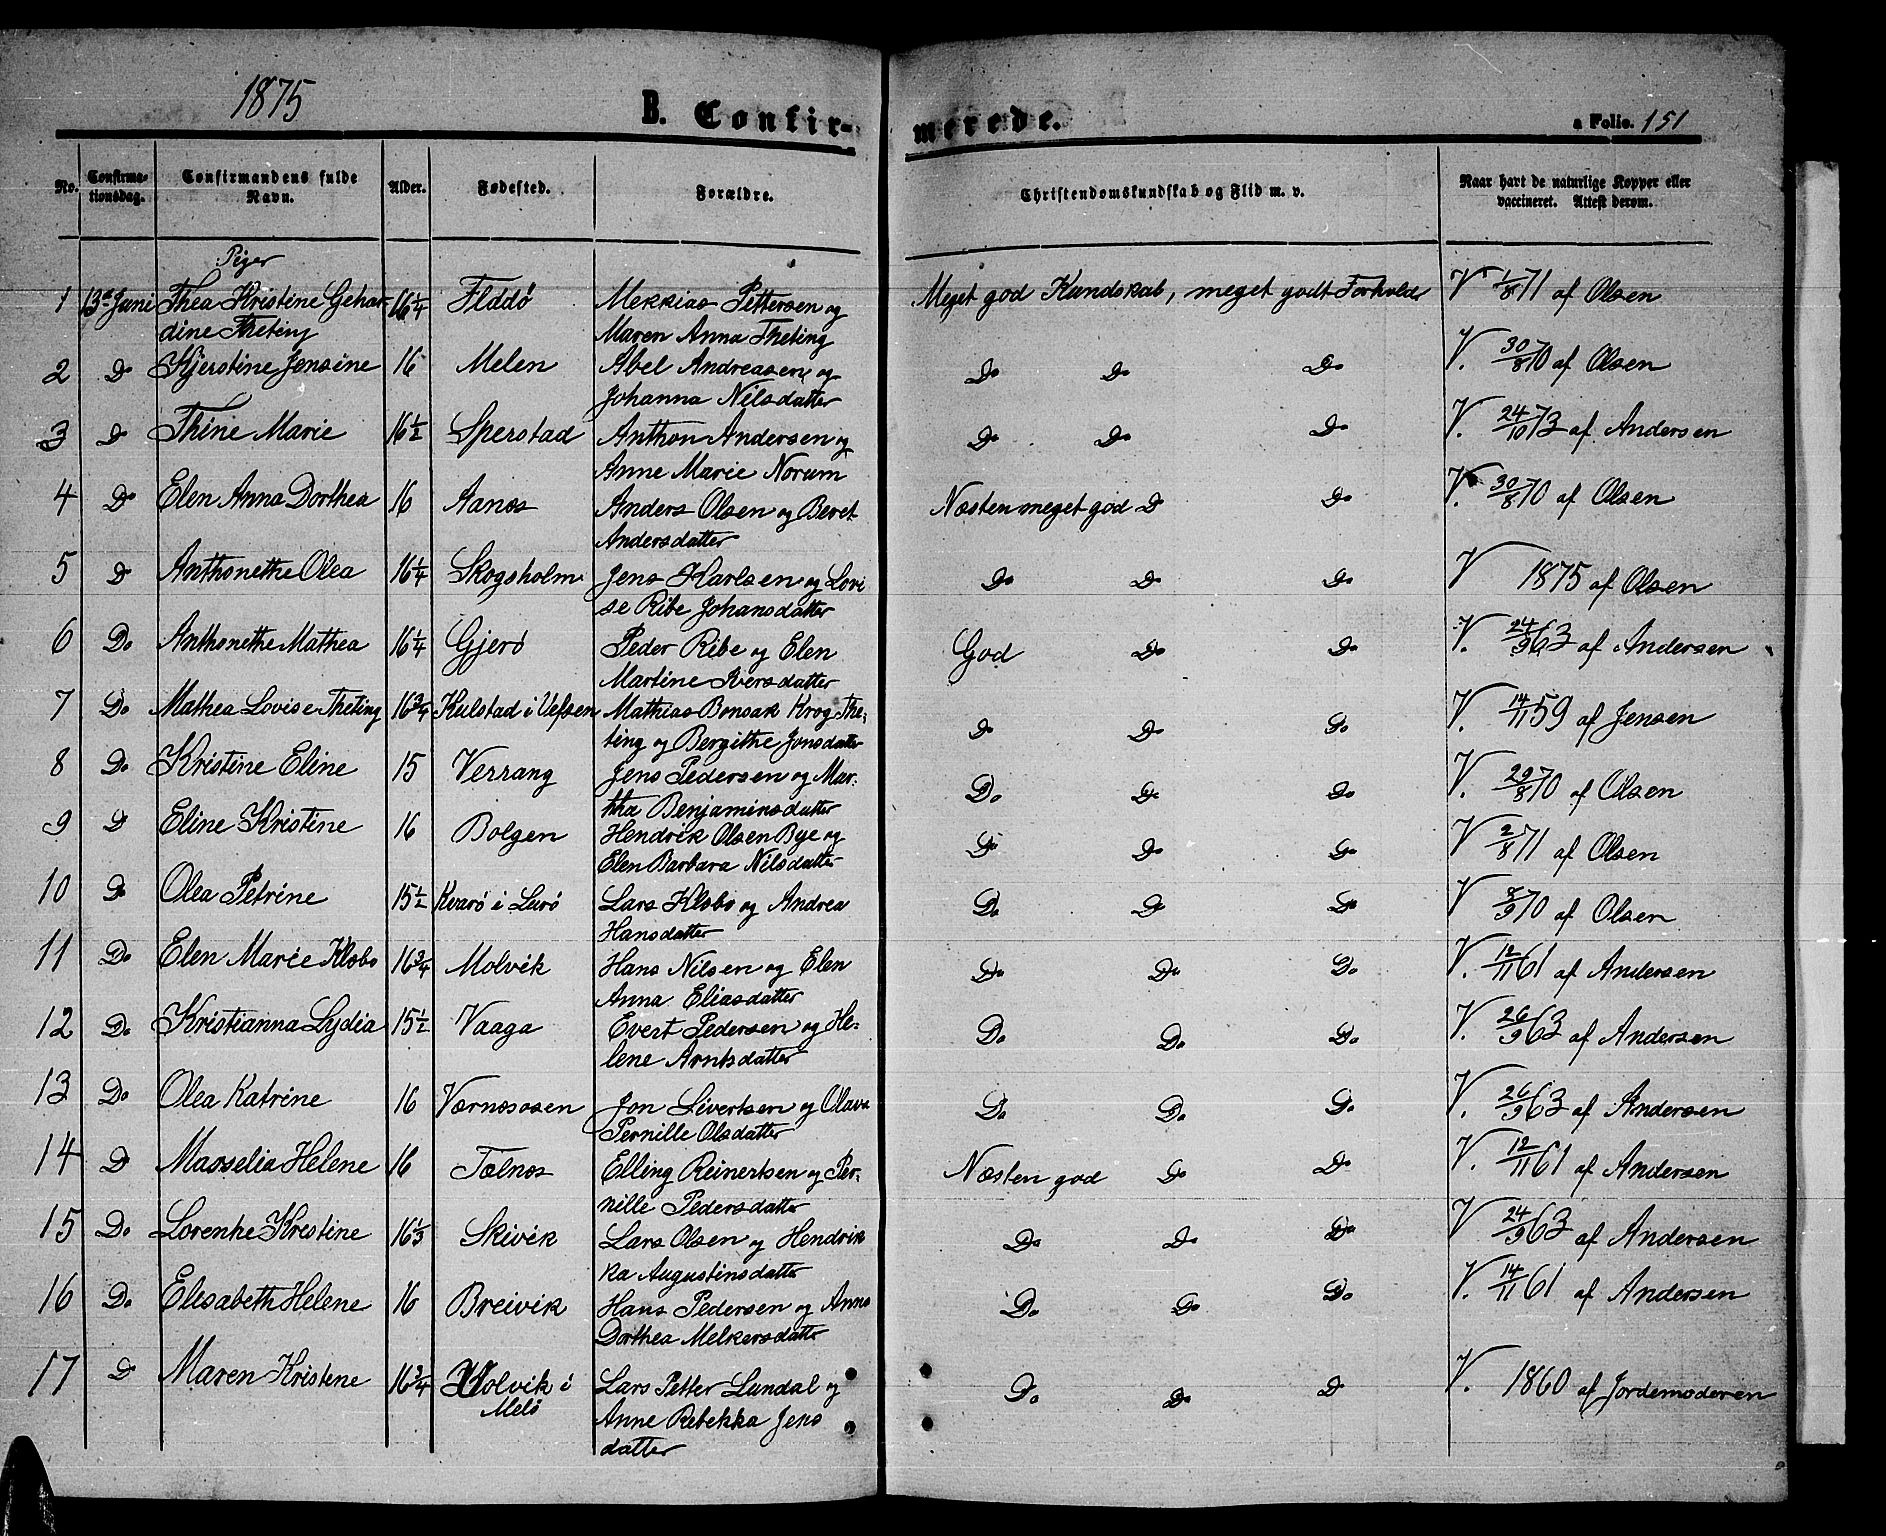 1875
B. Confir-
merede.
a Folio. 151
No.
Confirma-
tionsdag.
Confirmandens fulde
Navn.
Alder.
Fødested.
Forældre.
Christendomskundskab og Flid m. v.
Naar havt de naturlige Kopper eller
vaccineret. Attest derom.
Piger
1 13de Juni Thea Kristine Gehar- 16 1/4 Flddø Mekkias Pettersen og Meget god Kundskab, meget godt Forhold V 1/8 71 af Olsen
dine Theting Maren Anna Theting
2 Do Kjerstine Jensine 16 Melen Abel Andreasen og Do Do Do V. 30/8 70 af Olsen
Johanna Nilsdatter
3 Do Thine Marie 16 1/2 Sperstad Anthon Andersen og Do Do Do V. 24/10 73 af Andersen
Anne Marie Norum
4 Do Elen Anna Dorthea 16 Aanes Anders Olsen og Beret Næsten meget god Do Do V. 30/8 70 af Olsen
Andersdatter
5 Do Anthonethe Olea 16 1/4 Skogsholm Jens Karlsen og Lovi Do Do Do V 1875 af Olsen
se Ribe Johansdatter
6 Do Anthonethe Mathea 16 1/4 Gjerø Peder Ribe og Elen God Do Do V. 24/9 63 af Andersen
Martine Iversdatter
7 Do Mathea Lovise Theting 16 3/4 Kulstad i Vefsen Mathias Bonsak Krog The- Do Do Do V. 14/11 59 af Jensen
ting og Bergithe Jonsdatter
8 Do Kristine Eline 15 Verrang Jens Pedersen og Mar- Do Do Do V. 29/8 70 af Olsen
tha Benjaminsdatter
9 Do Eline Kristine 16 Bolgen Hendrik Olsen Bye og Do Do Do V 2/8 71 af Olsen
Elen Barbara Nilsdatter
10 Do Olea Petrine 15 1/2 Kvarø i Lurø Lars Klobo og Andrea Do Do Do V 8/9 70 af Olsen
Hansdatter
11 Do Elen Marie Klobo 16 3/4 Molvik Hans Nilsen og Elen Do Do Do V. 12/11 61 af Andersen
Anna Eliasdatter
12 Do Kristianna Lydia 15 1/2 Vaaga Evert Pedersen og He- Do Do Do V. 26/9 63 af Andersen
lene Arntsdatter
13 Do Olea Katrine 16 Værnesosen Jon Sivertsen og Olava Do Do Do V. 26/9 63 af Andersen
Pernille Olsdatter
14 Do Masselia Helene 16 Tælnes Elling Reinertsen og Per- Næsten god Do Do V. 12/11 61 af Andersen
nille Pedersdatter
15 Do Lorenthe Kristine 16 1/3 Skivik Lars Olsen og Hendrik Do Do Do V 24/9 63 af Andersen
ka Augustinsdatter
16 Do Elisabeth Helene 16 Breivik Hans Pedersen og Anne Do Do Do V. 14/11 61 af Andersen
Dorthea Melkersdatter
17 Do Maren Kristene 16 3/4 Holvik i Lars Petter Lundal og Do Do Do V. 1860 af Jordemoderen
Melø Anne Rebekka Jens
datter